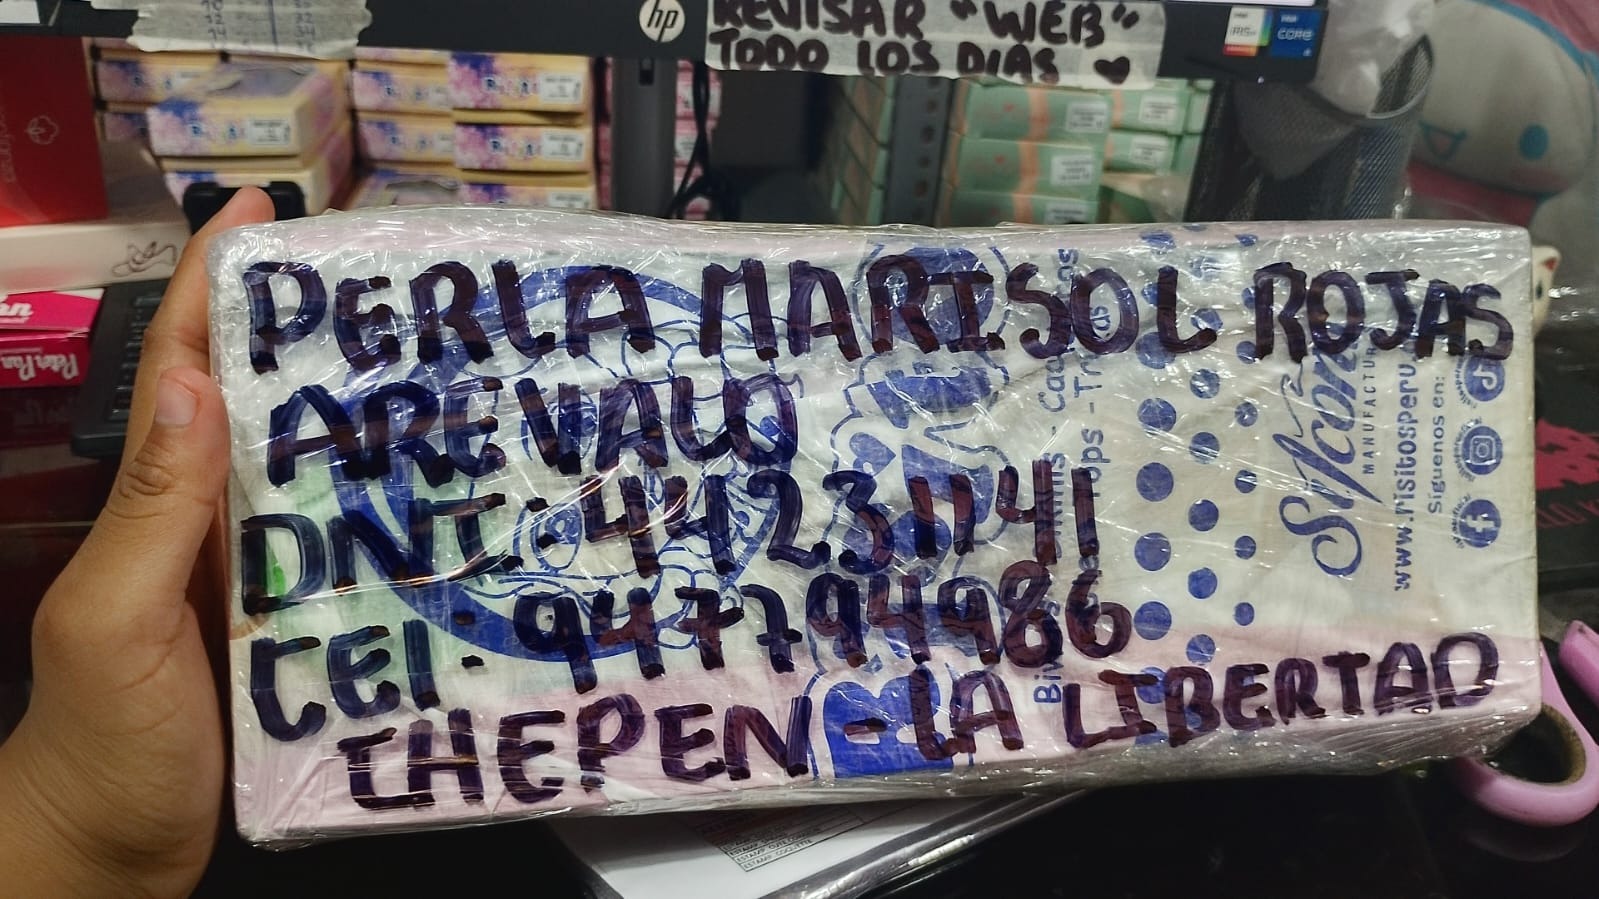 hp
REVISAR "WEB"
TODO LOS DIAS
CORE
PERLA MARISOL ROJAS
AREVALO
DNI: 44231141
TEl: 947794986
CHEPEN - LA LIBERTAD
MANUFACTUR
www.risitosperu.
Síguenos en:
Peter Pan